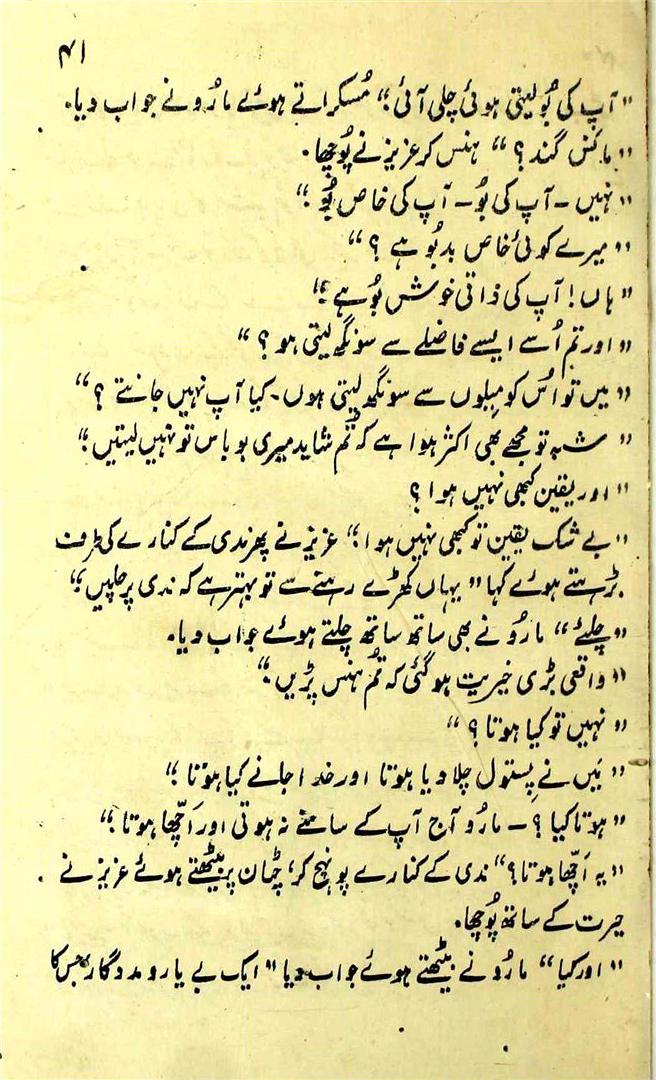 ۴۱
"آپ کی بُو لیتی ہوئی چلی آئی؛" مُسکراتے ہوئے مارُو نے جواب دیا۔
"مانس گند؟" ہنس کر عزیز نے پُوچھا۔
"نہیں ۔ آپ کی بُو ۔ آپ کی خاص بُو؛"
"میرے کوئی خاص بدبُو ہے؟"
"ہاں! آپ کی ذاتی خوش بُو ہے؛"
"اور تم اُسے ایسے فاصلے سے سونگھ لیتی ہو؟"
"میں تو اُس کو مِیلوں سے سونگھ لیتی ہوں۔ کیا آپ نہیں جانتے؟"
"شبہ تو مجھے بھی اکثر ہوا ہے کہ تُم شاید میری بو باس تو نہیں لیتیں؛"
"اور یقین کبھی نہیں ہوا؟
"بے شک یقین تو کبھی نہیں ہوا؛" عزیز نے پھر ندی کے کنارے کی طرف
بڑہتے ہوئے کہا "یہاں کھڑے رہنے سے تو بہتر ہے کہ ندی پر چلیں؛"
"چلیے" مارُو نے بھی ساتھ ساتھ چلتے ہوئے جواب دیا۔
"واقعی بڑی خیریت ہو گئی کہ تُم ہنس پڑیں؛"
"نہیں تو کیا ہوتا؟"
"مَیں نے پِستول چلا دیا ہوتا اور خدا جانے کیا ہوتا؛"
"ہوتا کیا؟ ۔ مارُو آج آپ کے سامنے نہ ہوتی اور اَچّھا ہوتا؛"
"یہ اَچّھا ہوتا؟" ندی کے کنارے پونہچ کر، چٹان پر بیٹھتے ہوئے عزیز نے
حیرت کے ساتھ پُوچھا۔
"اور کیا" مارُو نے بیٹھتے ہوئے جواب دیا "ایک بے یار و مددگار جس کا